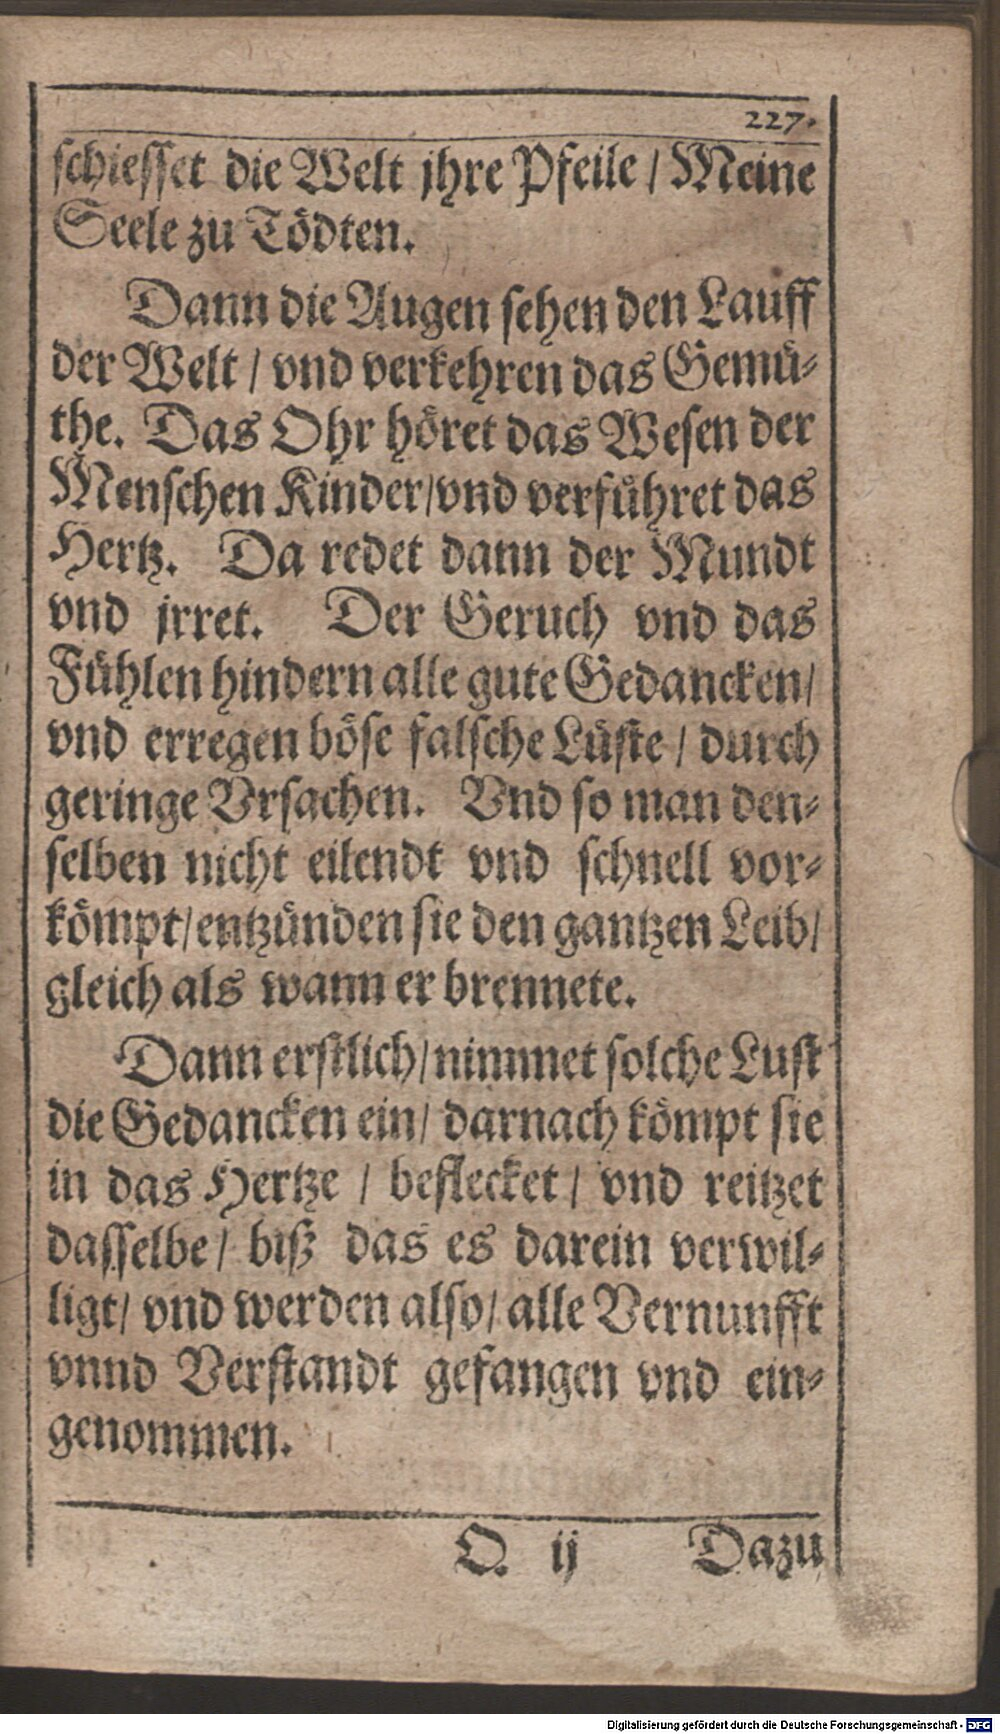 227.
schiesset die Welt jhre Pfeile / Meine
Seele zu Tödten.
Dann die Augen sehen den Lauff
der Welt / vnd verkehren das Gemü-
the. Das Ohr höret das Wesen der
Menschen Kinder/vnd verführet das
Hertz. Da redet dann der Mundt
vnd jrret. Der Geruch vnd das
Fühlen hindern alle gute Gedancken/
vnd erregen böse falsche Lüste / durch
geringe Vrsachen. Vnd so man den-
selben nicht eilendt vnd schnell vor-
kömpt/entzünden sie den gantzen Leib/
gleich als wann er brennete.
Dann erstlich/nimmet solche Lust
die Gedancken ein/ darnach kömpt sie
in das Hertze / beflecket / vnd reitzet
dasselbe/ biß das es darein verwil-
ligt/ vnd werden also/ alle Vernunfft
vnnd Verstandt gefangen vnd ein-
genommen.
O. ij Dazu
Digitalisierung gefördert durch die Deutsche Forschungsgemeinschaft - DFG